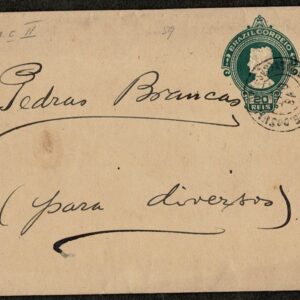 BRAZIL CORREIO
20
REIS
Pedras Brancas
(para diversos)